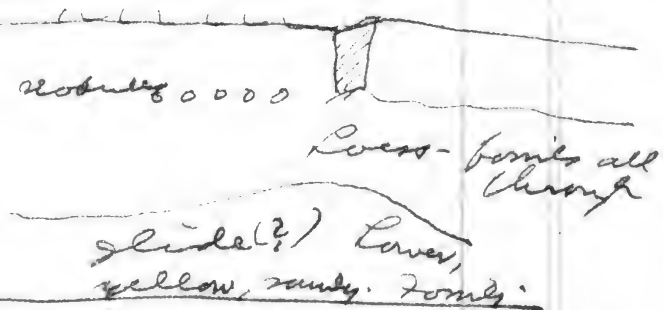 nodules o o o o o
Loess - fossils all
through
slide (?) Lower,
yellow, sandy. Fossils.